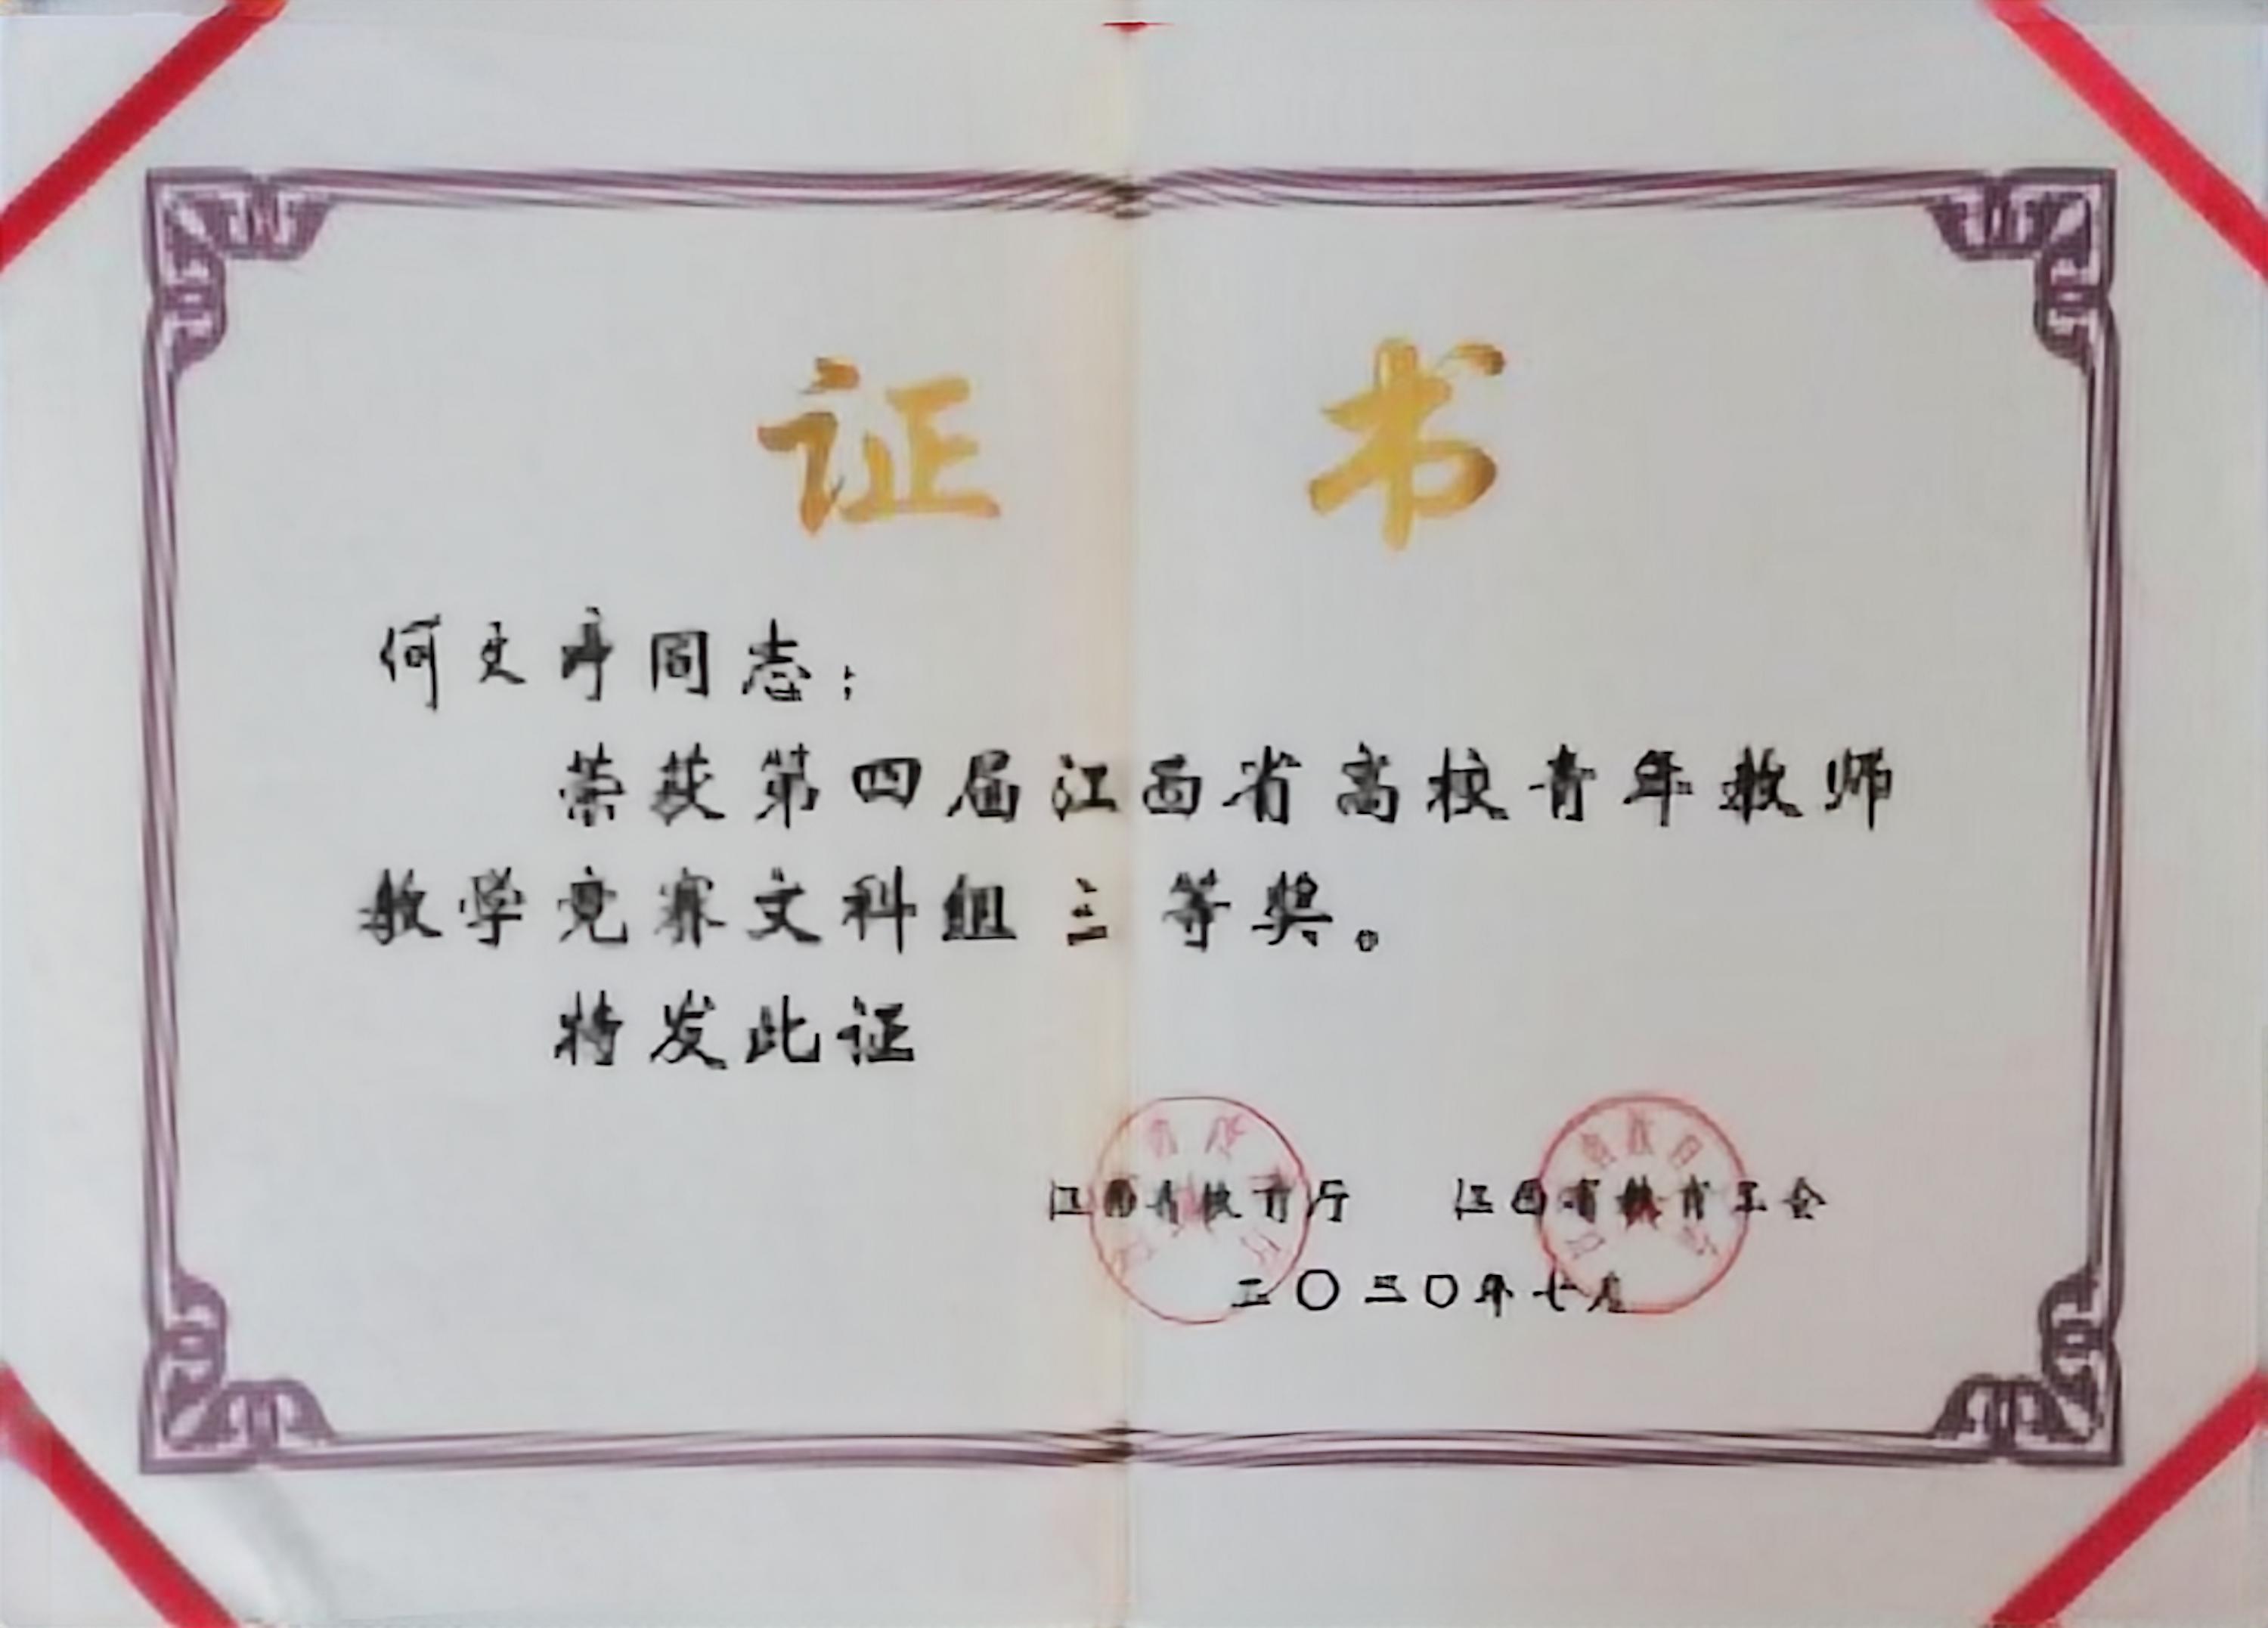 证书
何文婷同志：
荣获第四届江西省高校青年教师
教学竞赛文科组三等奖。
特发此证
江西省教育厅 江西省教育工会
二〇二〇年七月